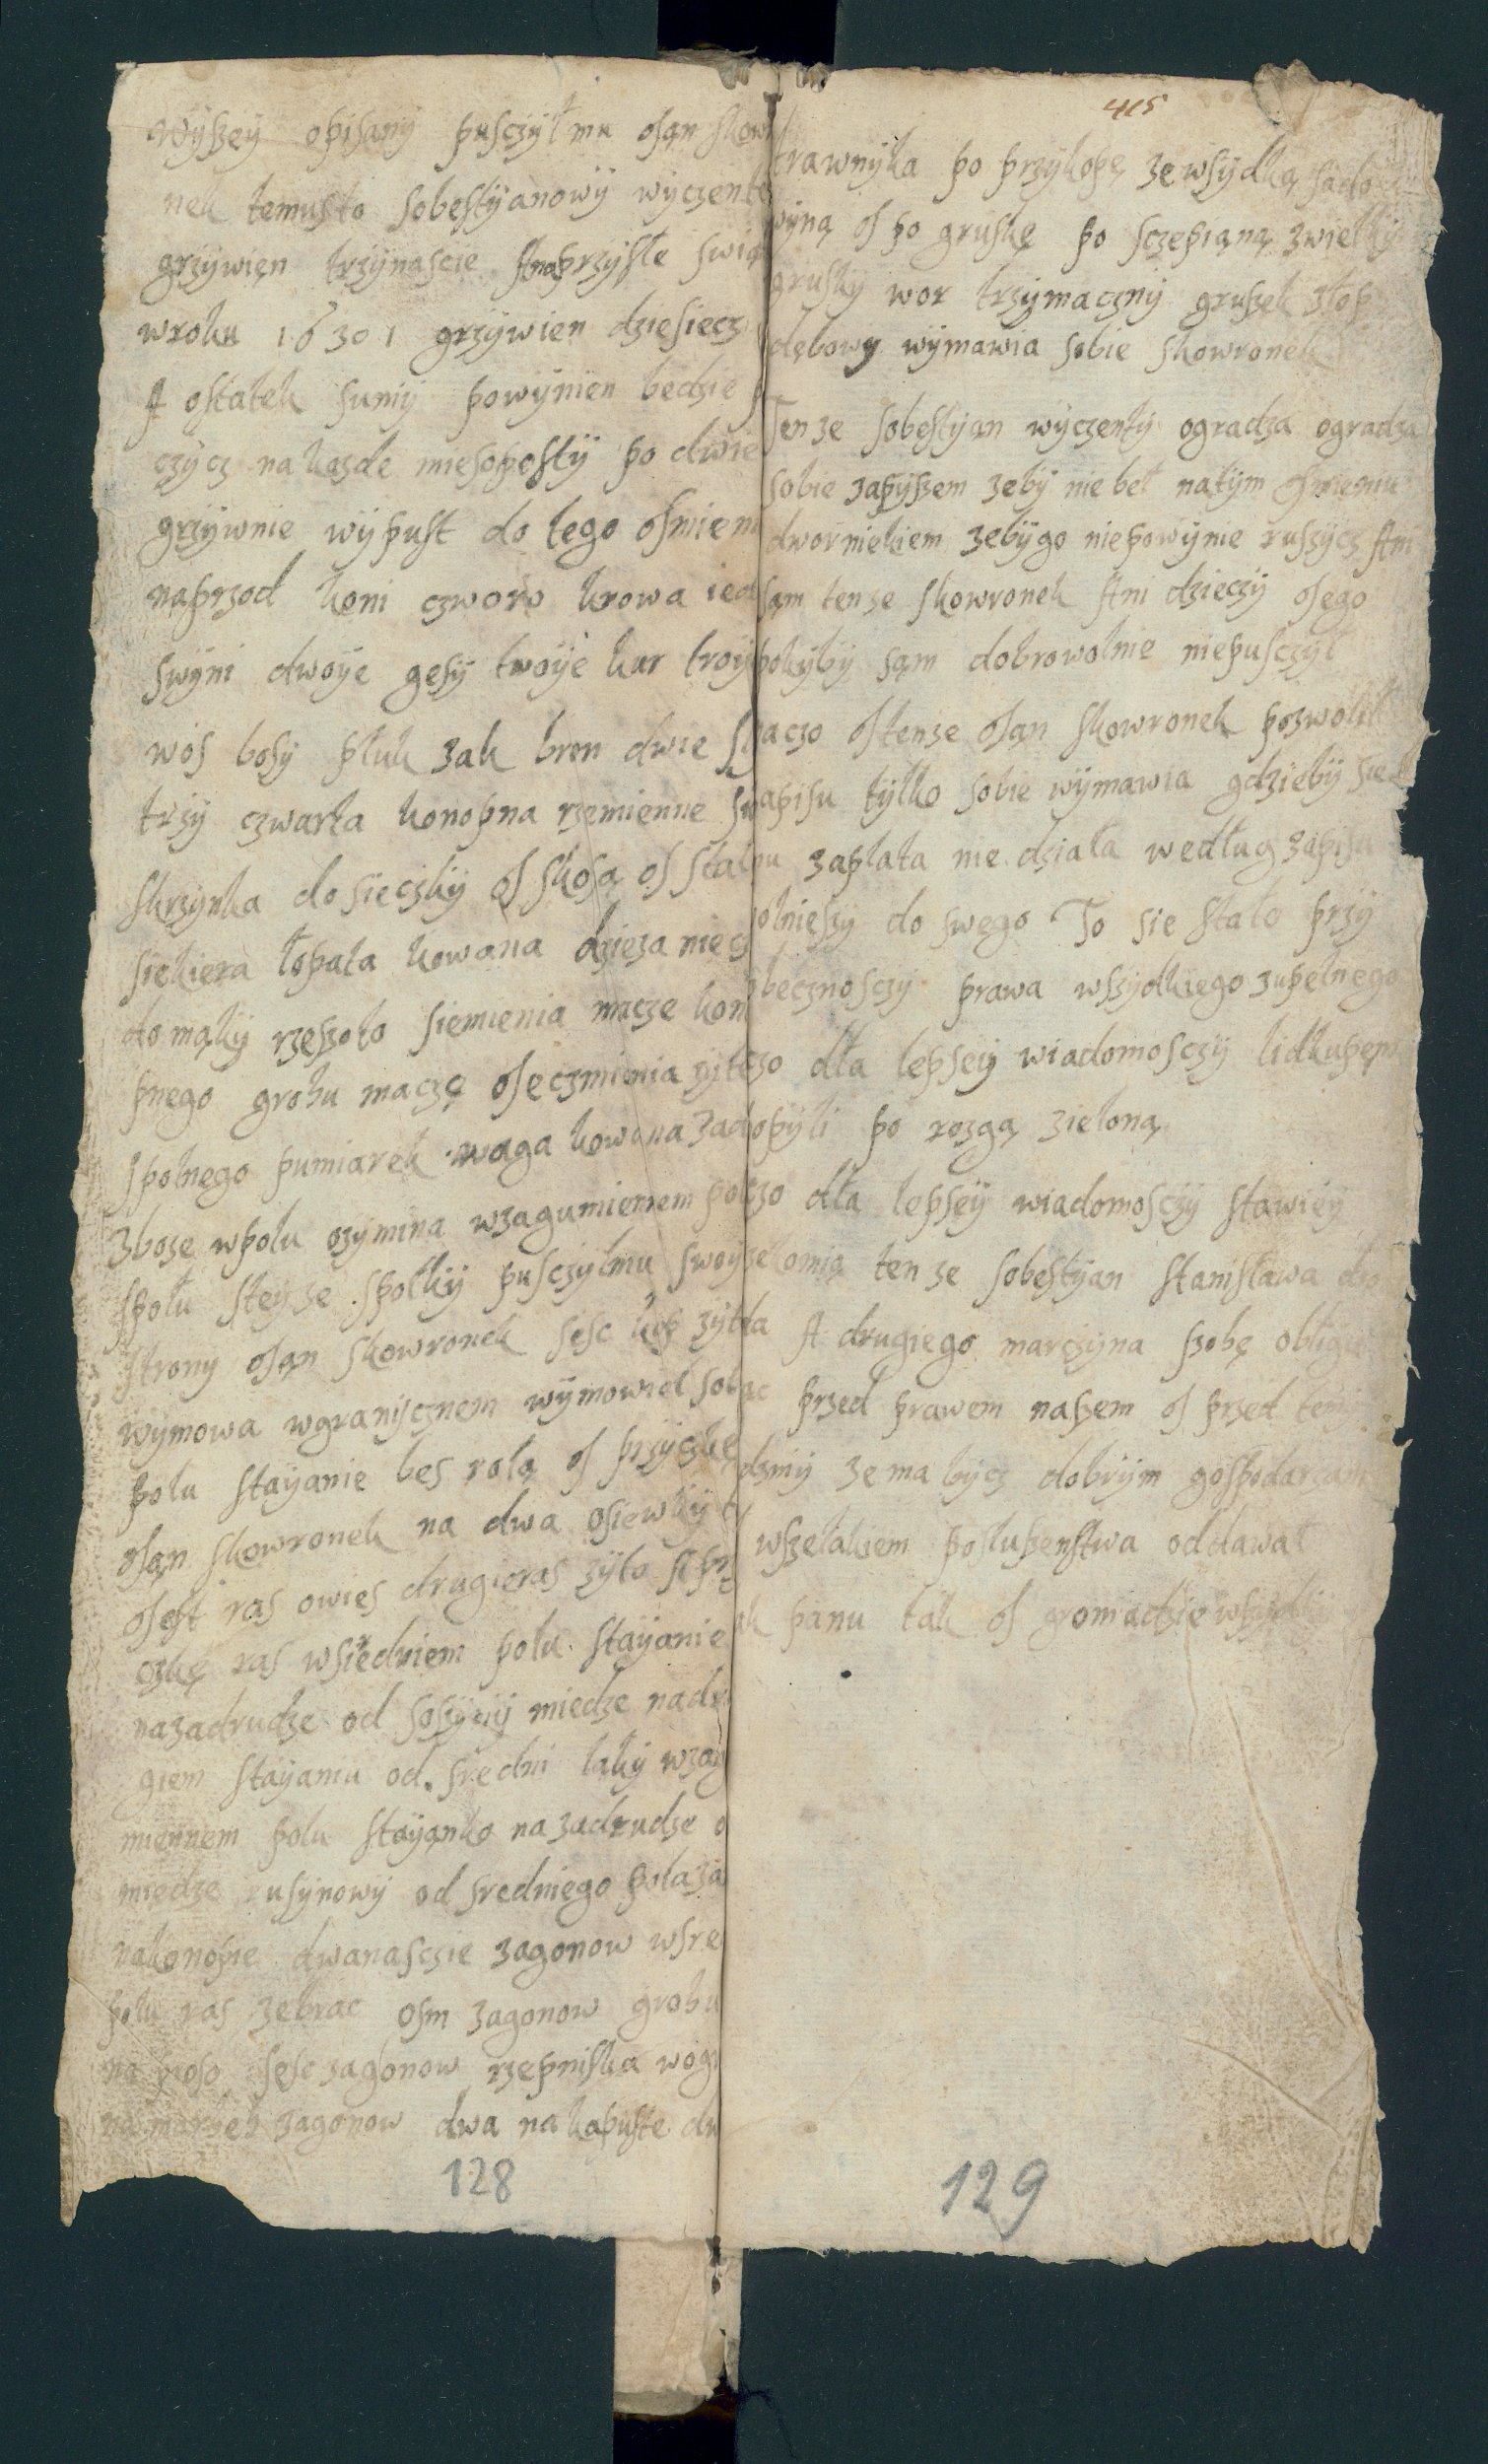 wyszey opisany pusczył mu Jan skow
nek temusto Sobestyanowÿ wÿczente
grzÿwien trzÿnascie Anaprzÿsłe swią
wroku 1630 1 grzÿwien dziesiecz
A ostatek sumÿ powÿnien bedzie
czÿcz nakazde miesopostÿ po dwie
grzÿwnie wÿpust do tego Jmieni
naprzod koni czworo krowa ied
swÿni dwoÿe gesÿ troÿe kur troÿ
wos bosÿ pluk zak bron dwie
trzÿ czwarta konopna rzemienne
skrzÿnka do sieczkÿ J kosa J stal
siekiera łopata kowana dzieza
do mąkÿ rzeszoto siemienia macze kon
pnego grohu maczę Jeczmienia
spolnego pumiarek waga kowana
zboze wpolu ozÿmina wzagumiennem
społu steÿze społkÿ pusczÿłmu swoÿ
stronÿ Jan skowronek sesc kop zÿt
wÿmowa wgranicznem wÿmowieł sob
polu staÿanie bes rolą J przÿczkę
Jan skowronek na dwa osiewkÿ
Jest ras owies drugiras zÿto A
czkę ras wsredniem polu staÿanie
nazadrudze od miedze nadru
giem staÿaniu od sredni łakÿ wzag
miennem polu staÿanko nazadrudze o
miedze usÿnowÿ od sredniego pola
nakonopie dwanasczie zagonow wsre
polu ras zebrac osm zagonow grohu
na proso sesc zagonow rzepniska wogr
na marhef zagonow dwa nakapuste dw
128

415
trawnÿka po przÿkopę zewsÿdką
wÿną J po gruskę po sczepianą zwielkÿ
gruskÿ wor trzÿmacznÿ grusek
dębowÿ wÿmawia sobie skowronek
Tenze Sobestÿan wÿczentÿ ogradza ogradza
sobie zapÿszem zebÿ niebeł natÿm Jmieniu
dwornikiem zebÿgo niepowÿnie ruszÿcz Ani
sąm tenze skowronek Ani dzieczÿ Jego
pokÿbÿ sąm dobrowolnie niepusczÿł
aczo Jtenze Jan skowronek pozwolił
apisu tÿlko sobie wÿmawia gdziebÿ sie
zapłata nie działa według zapisu
olnieszÿ do swego To sie stało przÿ
beznosczÿ prawa wszÿdkiego zupełnego
czo dla lepseÿ wiadomosczÿ lidkupem
opÿli po rozgą zieloną
czo dla lepseÿ wiadomosczÿ stawieÿ
tenze Sobestÿan Stanisława
A drugiego marczÿna szobę
przed prawem naszem J przed temÿ
dzmÿ zema bÿcz dobrÿm gospodarzam
wszelakiem poslusenstwa oddawał
k panu tak J gromadzie
129